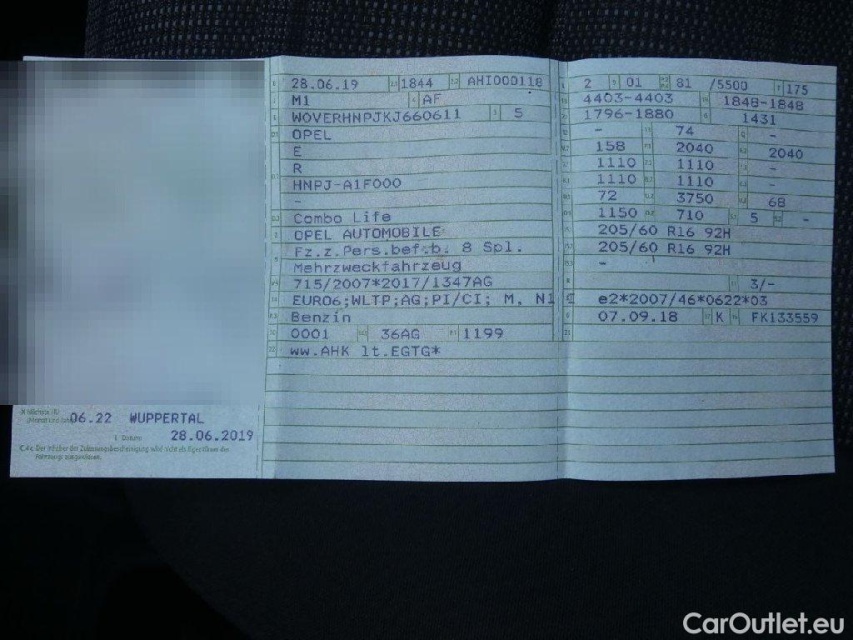 28.06.19 1844 AHI000118
M1 AF
W0VERHNPJKJ660611 5
OPEL
E
R
HNPJ-A1F000
-
Combo Life
OPEL AUTOMOBILE
Fz.z.Pers.bef.b. 8 Spl.
Mehrzweckfahrzeug
715/2007*2017/1347AG
EURO6;WLTP;AG;PI/CI; M, N1
Benzin
0001 36AG 1199
ww.AHK lt.EGTG*
2 01 81 /5500 175
4403-4403 1848-1848
1796-1880 1431
- 74 -
158 2040 2040
1110 1110 -
1110 1110 -
72 3750 68
1150 710 5 -
205/60 R16 92H
205/60 R16 92H
-
3/-
e2*2007/46*0622*03
07.09.18 K FK133559
06.22 WUPPERTAL
28.06.2019
CarOutlet.eu